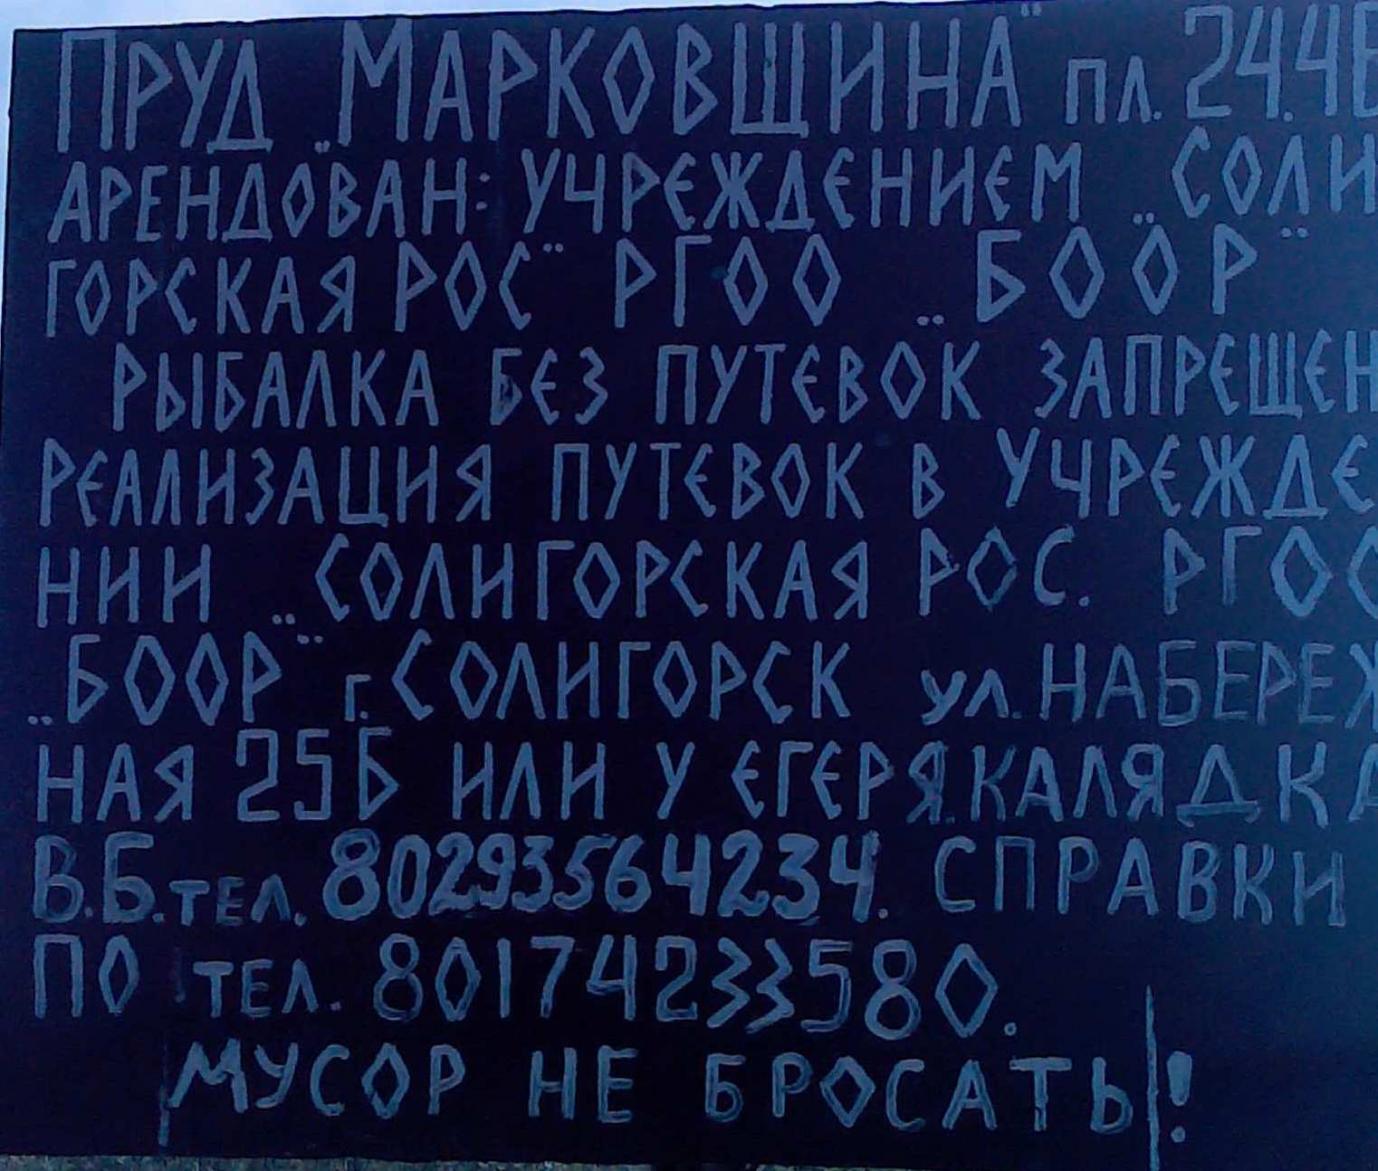 ПРУД „МАРКОВЩИНА" пл. 24.4
АРЕНДОВАН: УЧРЕЖДЕНИЕМ „СОЛИ
ГОРСКАЯ РОС" РГОО „БООР"
РЫБАЛКА БЕЗ ПУТЕВОК ЗАПРЕЩЕН
РЕАЛИЗАЦИЯ ПУТЕВОК В УЧРЕЖДЕ
НИИ „СОЛИГОРСКАЯ РОС. РГОО
„БООР" г. СОЛИГОРСК ул. НАБЕРЕЖ
НАЯ 25Б ИЛИ У ЕГЕРЯ. КАЛЯДКА
В.Б. тел. 80293564234. СПРАВКИ
ПО ТЕЛ. 80174233580.
МУСОР НЕ БРОСАТЬ!